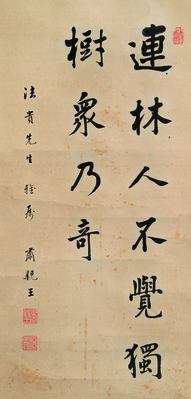 連林人不覺獨
樹衆乃奇
法貴先生雅屬 肅親王